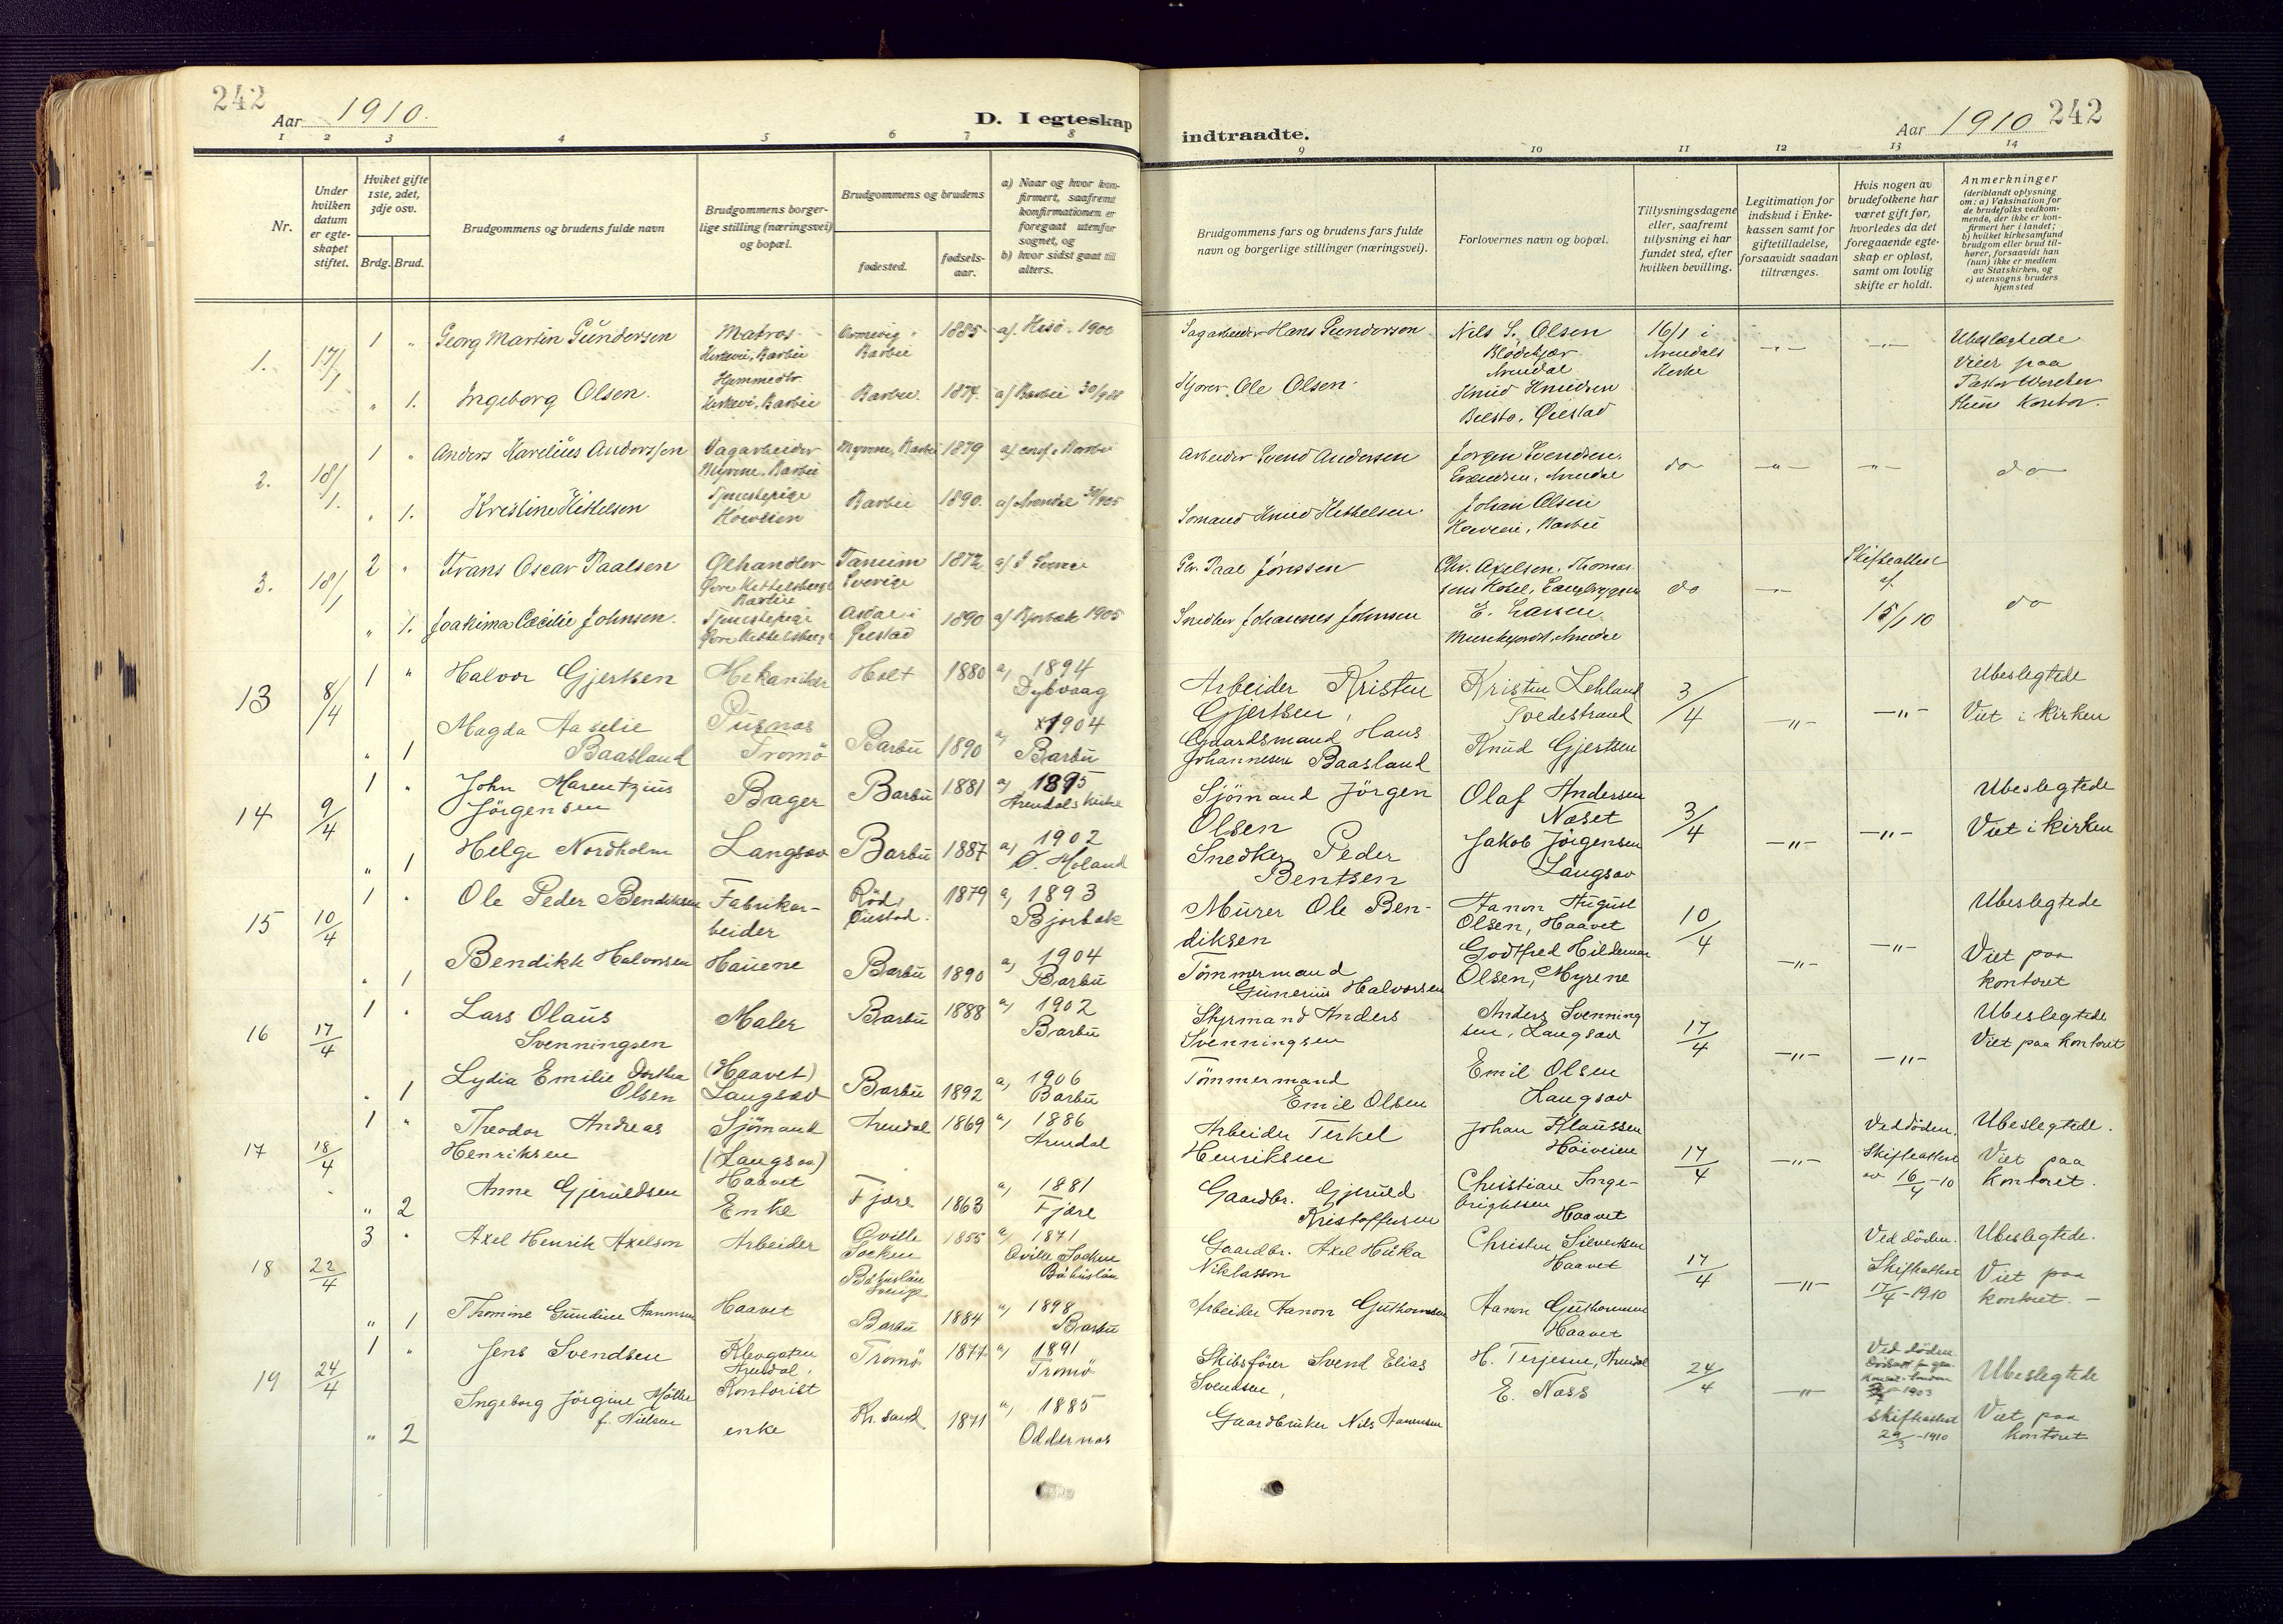 242
Aar 1910.
D. I egteskap
1 2 3 4 5 6 7 8
Nr.
Under hvilken datum er egteskapet stiftet.
Hvilket gifte 1ste, 2det, 3dje osv.
Brdg. Brud.
Brudgommens og brudens fulde navn
Brudgommens borgerlige stilling (næringsvei) og bopæl.
Brudgommens og brudens
fødested.
fødselsaar.
a) Naar og hvor konfirmert, saafremt konfirmationem er foregaat utenfor sognet, og
b) hvor sidst gaat til alters.
indtraadte.
Aar 1910
242
9 10 11 12 13 14
Brudgommens fars og brudens fars fulde navn og borgerlige stillinger (næringsvei).
Forlovernes navn og bopæl.
Tillysningsdagene eller, saafremt tillysning ei har fundet sted, efter hvilken bevilling.
Legitimation for indskud i Enkekassen samt for giftetilladelse, forsaavidt saadan tiltrænges.
Hvis nogen av brudefolkene har været gift før, hvorledes da det foregaaende egteskap er opløst, samt om lovlig skifte er holdt.
Anmerkninger
(deriblandt oplysning om: a) Vaksination for de brudefolks vedkommende, der ikke er konfirmert her i landet; b) hvilket kirkesamfund brudgom eller brud tilhører, forsaavidt han (hun) ikke er medlem av Statskirken, og c) utensogns bruders hjemsted
1. 17/1
1 " Georg Martin Gundersen Matros Kirkevei, Barbu Barbu 1885 a/ Hisø. 1900
Sagarbeider Hans Gundersen Nils S. Olsen Blødekjær Arendal 16/1 i Arendals Kirke —"— —"— Ubeslægtede
Viet paa
" 1. Ingeborg Olsen. Kirkevei, Barbu Barbu. 1874. a/ Barbu
Ole Olsen. Knud Knudsen Øiestad Kontor.
2. 18/1.
1 " Anders Karelius Anderssen Dagarbeider Myrene, Barbu Myrene, Barbu 1879 a/ conf. i Barbu
Arbeider Svend Andersen Jørgen Svendsen, Arendal do —"— —"— do
" 1. Kristine Kittelsen Tjenestepige Barbu 1890. a/ Arendal
Sømand Knud Kittelsen Johan Olsen Barbu
3. 18/1
2 " Frans Oscar Paalsen Ølhandler Øvre Kittelsbergt Barbu Tanum Sverige 1872 a/ i Sverige
Paal Jonssen Chr. Axelsen, Thomassens Hotel, Langbryggen do —"— Skifteattest af 15/1 10 do
" 1. Joakima Cæcilie Johnsen. Tjenestepige Øvre Kittelsbergt Øiestad 1890 a/ Bjorbæk 1905
Snedker Johannes Johnsen E. Larsen Arendal
13 8/4
1 " Halvor Gjertsen Mekaniker Holt 1880 a) 1894 Dybvaag
Arbeider Kristen Gjertsen, Kristen Lehland Tvedestrand 3/4 —"— —"— Ubeslegtede
Viet i kirken
" 1 Magda Aaselie Baasland Pusnæs Tromö Barbu 1890 a) 1904 Barbu
Gaardsmand Hans Johannesen Baasland Knud Gjertsen
14 9/4
1 " John Marentzius Jörgensen Bager Barbu 1881 a) 1895 Arendals kirke
Sjömand Jörgen Olsen Olaf Andersen Næset 3/4 —"— —"— Ubeslegtede
Viet i kirken
" 1 Helge Nordholm Langsæv Barbu 1887 a) 1902 Ø. Moland
Snedker Peder Bentsen Jakob Jörgensen Langsæv
15 10/4
1 " Ole Peder Bendiksen Fabrikarbeider Röd, Øiestad. 1879 a) 1893 Bjorbæk
Murer Ole Bendiksen Aanon August Olsen, Haavet 10/4 —"— —"— Ubeslegtede
Viet paa kontoret
" 1 Bendikte Halvorsen Hauene Barbu 1890 a) 1904 Barbu
Tömmermand Gunerius Halvorsen Godtfred Hildemar Olsen, Myrene
16 17/4
1 " Lars Olaus Svenningsen Maler Barbu 1888 a) 1902 Barbu
Styrmand Anders Svenningsen Anders Svenningsen, Langsæv 17/4 —"— —"— Ubeslegtede
Viet paa kontoret
" 1 Lydia Emilie Dorthea Olsen (Haavet) Langsæv Barbu 1892 a) 1906 Barbu
Tömmermand Emil Olsen Emil Olsen Langsæv
17 18/4
1 " Theodor Andreas Henriksen Sjömand (Langsæv) Haavet Arendal 1869 a) 1886 Arendal
Arbeider Terkel Henriksen Johan Klaussen Höiveien 17/4 —"— Ved döden. Skifteattest av 16/4-10 Ubeslegtede.
Viet paa kontoret.
" 2 Anne Gjeruldsen Enke Fjære 1863 a) 1881 Fjære
Gaardbr. Gjeruld Kristoffersen Christian Ingebrigtsen Haavet
18 22/4
3 " Axel Henrik Axelson Arbeider Qville Socken Båhuslän Sverige 1855 a) 1871 Qville Socken Båhuslän
Gaardbr. Axel Niklasson Christen Silvertsen Haavet 17/4 —"— Ved döden. Skifteattest 17/4-1910 Ubeslegtede.
Viet paa kontoret. —
" 1 Thomine Gundine Aanonsen Haavet Barbu 1884 a) 1898 Barbu
Arbeider Aanon Guthormsen Aanon Guthormsen Haavet
19 24/4
1 " Jens Svendsen Klevgaten Arendal, Kontorist Tromö 1877 a) 1891 Tromö
Skibsförer Svend Elias Svendsen, H. Terjesen, Arendal 24/4 —"— Ved döden 1903 Ubeslegtede
Viet paa kontoret
" 2 Ingeborg Jörgine Möller f. Nielsen enke Kr.sand 1871 a) 1885 Oddernæs
Gaardbruker Nils Aanensen E. Næss skifteattest 29/3-1910